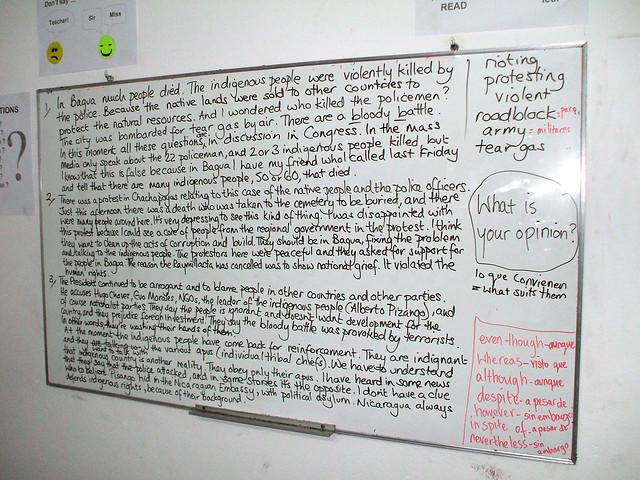 Don't say ...
Teacher!
Sir
Miss
READ
TIONS
?
1, In Bagua much people died. The indigenous people were violently killed by
the police. Because the native lands were sold to other countries to
protect the natural resources. And I wondered who killed the policemen?
The city was bombarded for tear gas by air. There are a bloody battle.
In this moment all these questions, in discussion in Congress. In the mass
media only speak about the 22 policeman, and 2 or 3 indigenous people killed but
I know that this is false because in Bagua I have my friend who called last Friday
and tell that there are many indigenous people, 50 or 60, that died.
2, There was a protest in Chachapoyas relating to this case of the native people and the police officers.
Just this afternoon there was a death who was taken to the cemetery to be buried, and there
were many people around here. It's very depressing to see this kind of thing. I was disappointed with
this protest because I could see a lot of people from the regional government in the protest. I think
they want to clean up the acts of corruption and build. They should be in Bagua, fixing the problem
and talking to the indigenous people. The protestors here were peaceful and they asked for support for
the people in Bagua. The reason the Raymillacta was cancelled was to show national grief. It violated the
human rights.
3, The President continued to be arrogant and to blame people in other countries and other parties.
He accuses Hugo Chavez, Evo Morales, NGOs, the leader of the indigenous people (Alberto Pizango), and
of course nationalist parties. They say the people is ignorant and doesn't want development for the
country and they prejudice foreign investment. They say the bloody battle was provoked by terrorists.
In other words, they're washing their hands of them.
At the moment the indigenous people have come back for reinforcement. They are indignant
and they are talking with the various apus (individual tribal chiefs). We have to understand
that indigenous country is another reality. They obey only their apus. I have heard in some news
that they say that the police attacked, and in some stories it's the opposite. I don't have a clue
who to believe. Pisango hid in the Nicaraguan Embassy, with political asylum. Nicaragua always
defends indigenous rights, because of their background.
rioting
protesting
violent
roadblock = paro,
army = militares
tear gas
What is
your opinion?
lo que convienen
= what suits them
even though - aunque
whereas - visto que
although - aunque
despite - a pesar de
however - sin embargo
in spite of - a pesar de
nevertheless - sin
embargo